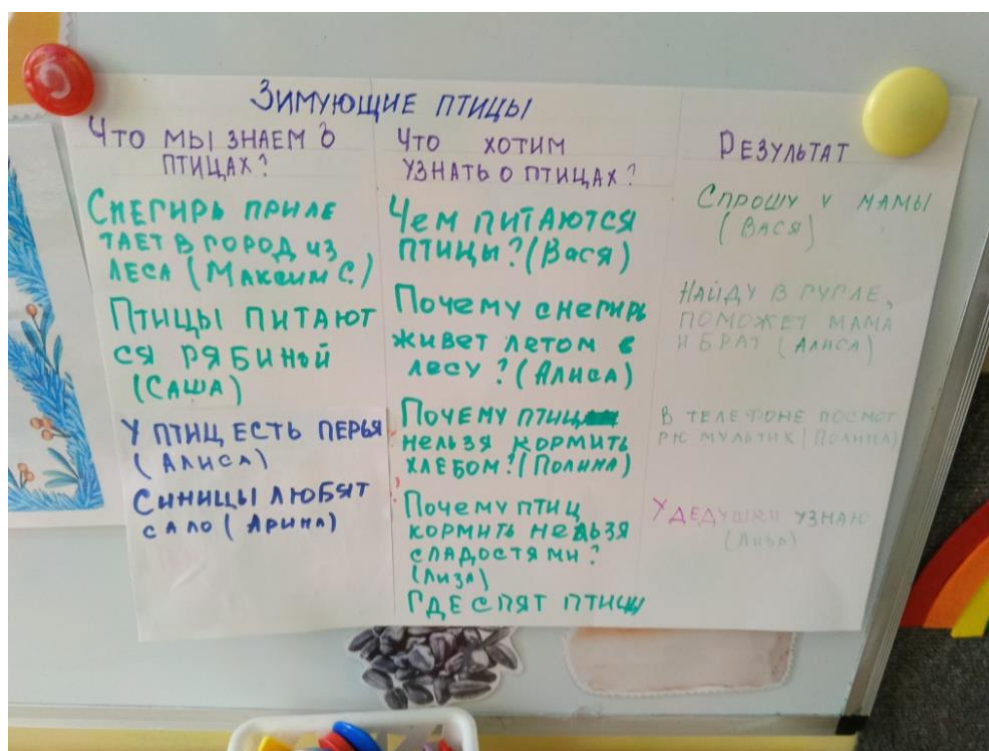 ЗИМУЮЩИЕ ПТИЦЫ
ЧТО МЫ ЗНАЕМ О
ПТИЦАХ?
СНЕГИРЬ ПРИЛЕ
ТАЕТ В ГОРОД ИЗ
ЛЕСА (МАКСИМ С.)
ПТИЦЫ ПИТАЮТ
СЯ РЯБИНЫЙ
(САША)
У ПТИЦ ЕСТЬ ПЕРЬЯ
(АЛИСА)
СИНИЦЫ ЛЮБЯТ
САЛО (АРИНА)
ЧТО ХОТИМ
УЗНАТЬ О ПТИЦАХ?
ЧЕМ ПИТАЮТСЯ
ПТИЦЫ? (ВАСЯ)
ПОЧЕМУ СНЕГИРЬ
ЖИВЕТ ЛЕТОМ В
ЛЕСУ? (АЛИСА)
ПОЧЕМУ ПТИЦ
НЕЛЬЗЯ КОРМИТЬ
ХЛЕБОМ? (ПОЛИНА)
ПОЧЕМУ ПТИЦ
КОРМИТЬ НЕЛЬЗЯ
СЛАДОСТЯМИ?
(ЛИЗА)
ГДЕ СПЯТ ПТИЦЫ
РЕЗУЛЬТАТ
СПРОШУ У МАМЫ
(ВАСЯ)
НАЙДУ В ГУГЛЕ,
ПОМОЖЕТ МАМА
И БРАТ (АЛИСА)
В ТЕЛЕФОНЕ ПОСМОТ
РЮ МУЛЬТИК (ПОЛИНА)
У ДЕДУШКИ УЗНАЮ
(ЛИЗА)